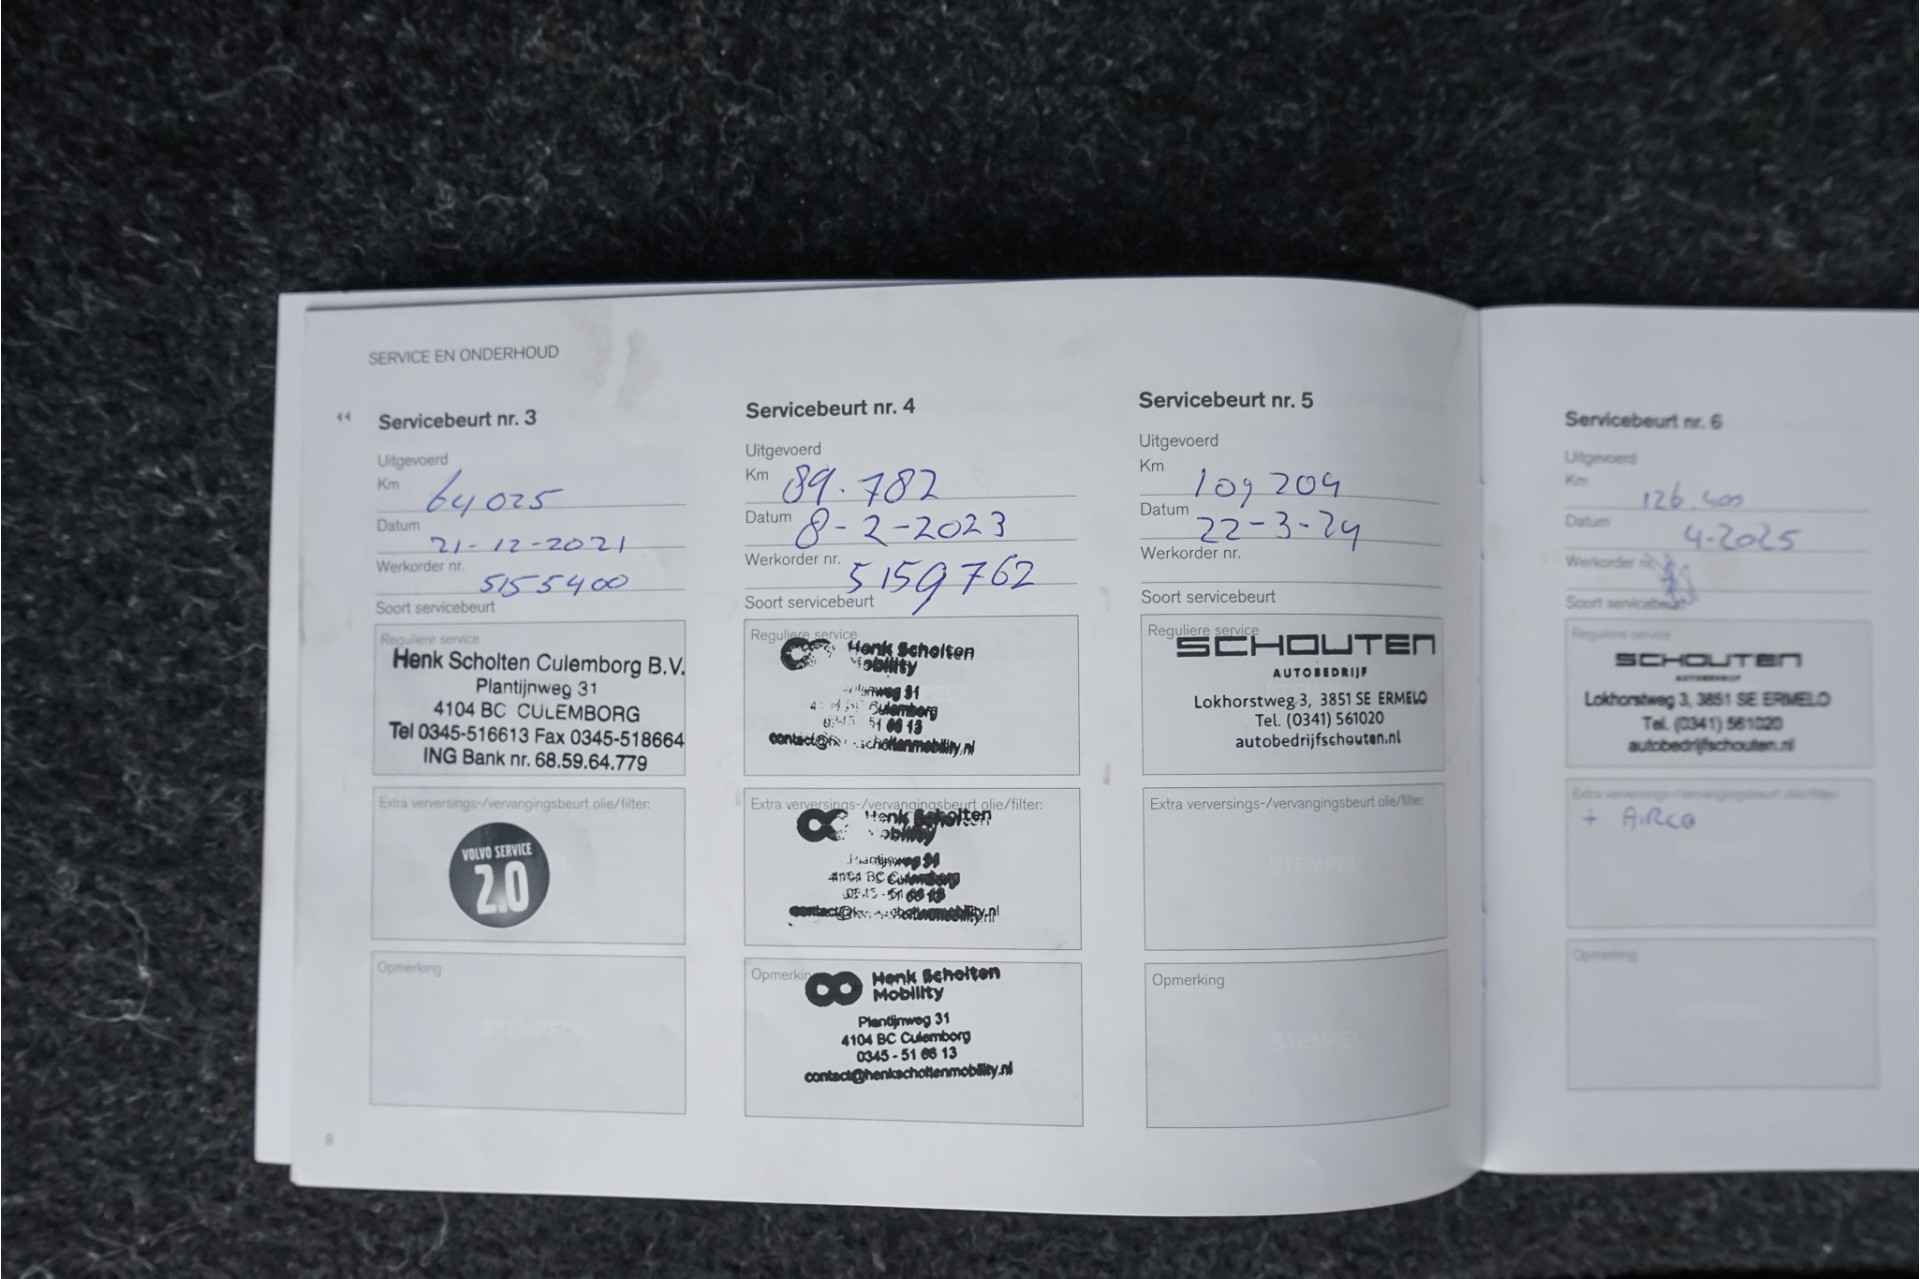 SERVICE EN ONDERHOUD
Servicebeurt nr. 3
Uitgevoerd
Km 64025
Datum 21-12-2021
Werkorder nr. 5155400
Soort servicebeurt
Reguliere service
Henk Scholten Culemborg B.V.
Plantijnweg 31
4104 BC CULEMBORG
Tel 0345-516613 Fax 0345-518664
ING Bank nr. 68.59.64.779
Extra verversings-/vervangingsbeurt olie/filter:
VOLVO SERVICE
2.0
Opmerking
8
Servicebeurt nr. 4
Uitgevoerd
Km 89.782
Datum 8-2-2023
Werkorder nr. 5159762
Soort servicebeurt
Reguliere service
Henk Scholten
Mobility
Plantijnweg 31
Culemborg
51 66 13
Extra verversings-/vervangingsbeurt olie/filter:
Henk Scholten
Mobility
Plantijnweg 31
4104 BC Culemborg
0345 - 51 66 13
Opmerking
Henk Scholten
Mobility
Plantijnweg 31
4104 BC Culemborg
0345 - 51 66 13
contact@henkscholtenmobility.nl
Servicebeurt nr. 5
Uitgevoerd
Km 109204
Datum 22-3-24
Werkorder nr.
Soort servicebeurt
Reguliere service
SCHOUTEN
AUTOBEDRIJF
Lokhorstweg 3, 3851 SE ERMELO
Tel. (0341) 561020
autobedrijfschouten.nl
Extra verversings-/vervangingsbeurt olie/filter:
Opmerking
Servicebeurt nr. 6
Uitgevoerd
Km 126.400
Datum 4-2025
Werkorder nr.
Soort servicebeurt
Reguliere service
SCHOUTEN
AUTOBEDRIJF
Lokhorstweg 3, 3851 SE ERMELO
Tel. (0341) 561020
autobedrijfschouten.nl
Extra verversings-/vervangingsbeurt olie/filter:
+ AIRCO
Opmerking